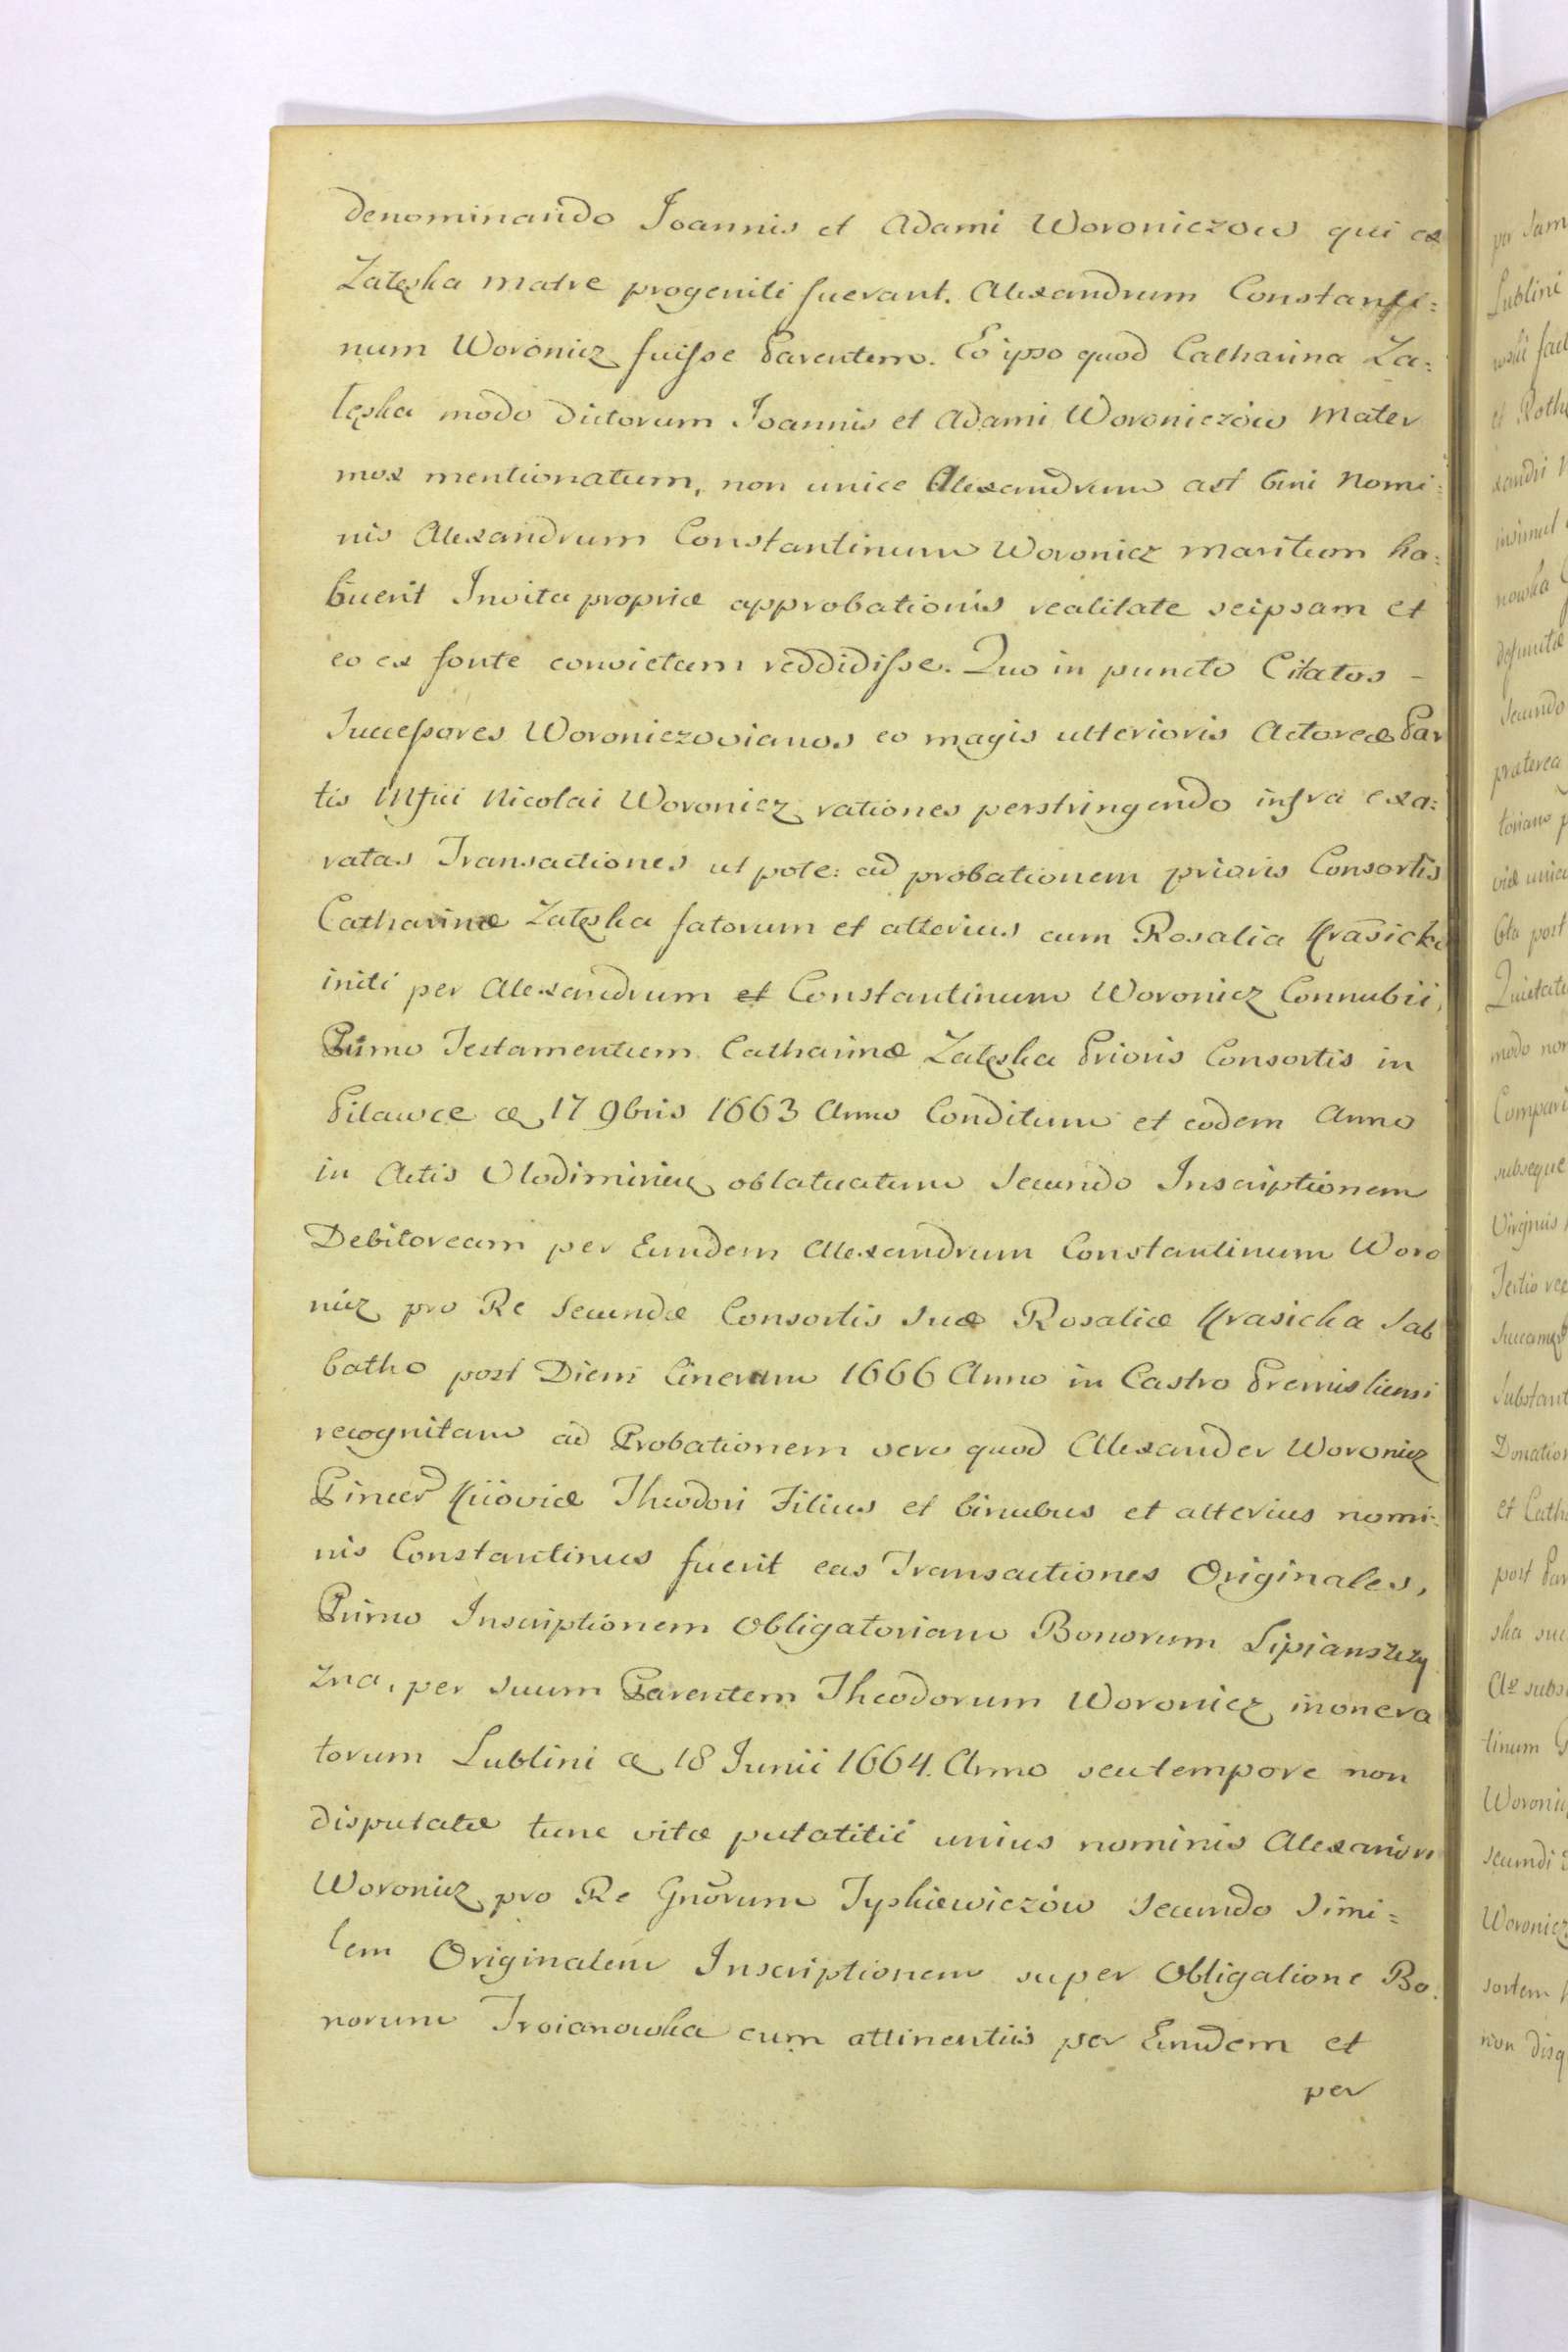 denominando Joannis et Adami Woroniczow qui ex
Załęska matre progeniti fuerant. Alexandrum Constanti:
num Woronicz fuisse Parentem. Eo ipso quod Catharina Za:
łęska modo dictorum Joannis et Adami Woroniczów Mater
mox mentionatum, non unice Alexandrum ast bini Nomi:
nis Alexandrum Constantinum Woronicz maritum ha:
buerit Invita propriæ approbationis realitate seipsam et
eo ex fonte convictam reddidisse. Quo in puncto Citatos -
Successores Woroniczovianos eo magis ulterioris Actoreæ Par
tis Mfici Nicolai Woronicz rationes perstringendo infra exa:
ratas Transactiones ut pote: ad probationem prioris Consortis
Catharinæ Załęska fatorum et alterius cum Rosalia Krasicka
initi per Alexandrum et Constantinum Woronicz Connubii,
Primo Testamentum Catharinæ Załęska Prioris Consortis in
Pilawce æ 17 9bris 1663 Anno Conditum et eodem Anno
in Actis Vlodimirien oblatuatum Secundo Inscriptionem
Debitoream per Eundem Alexandrum Constantinum Woro
nicz pro Re Secundæ Consortis Suæ Rosaliæ Krasicka Sab
batho post Diem Cinerum 1666 Anno in Castro Premisliensi
recognitam ad Probationem vero quod Alexander Woronicz
Pincer Kiioviæ Theodori Filius et binubus et alterius nomi:
nis Constantinus fuerit eas Transactiones Originales,
Primo Inscriptionem Obligatoriam Bonorum Lipianszczy
zna, per suum Parentem Theodorum Woronicz inonera
torum Lublini æ 18 Junii 1664. Anno seu tempore non
disputatæ tunc vitæ putatitii unius nominis Alexandri
Woronicz pro Re Gnorum Tyszkiewiczów Secundo Simi=
lem Originalem Inscriptionem super Obligatione Bo:
norum Troianowka cum attinentiis per Eundem et
per